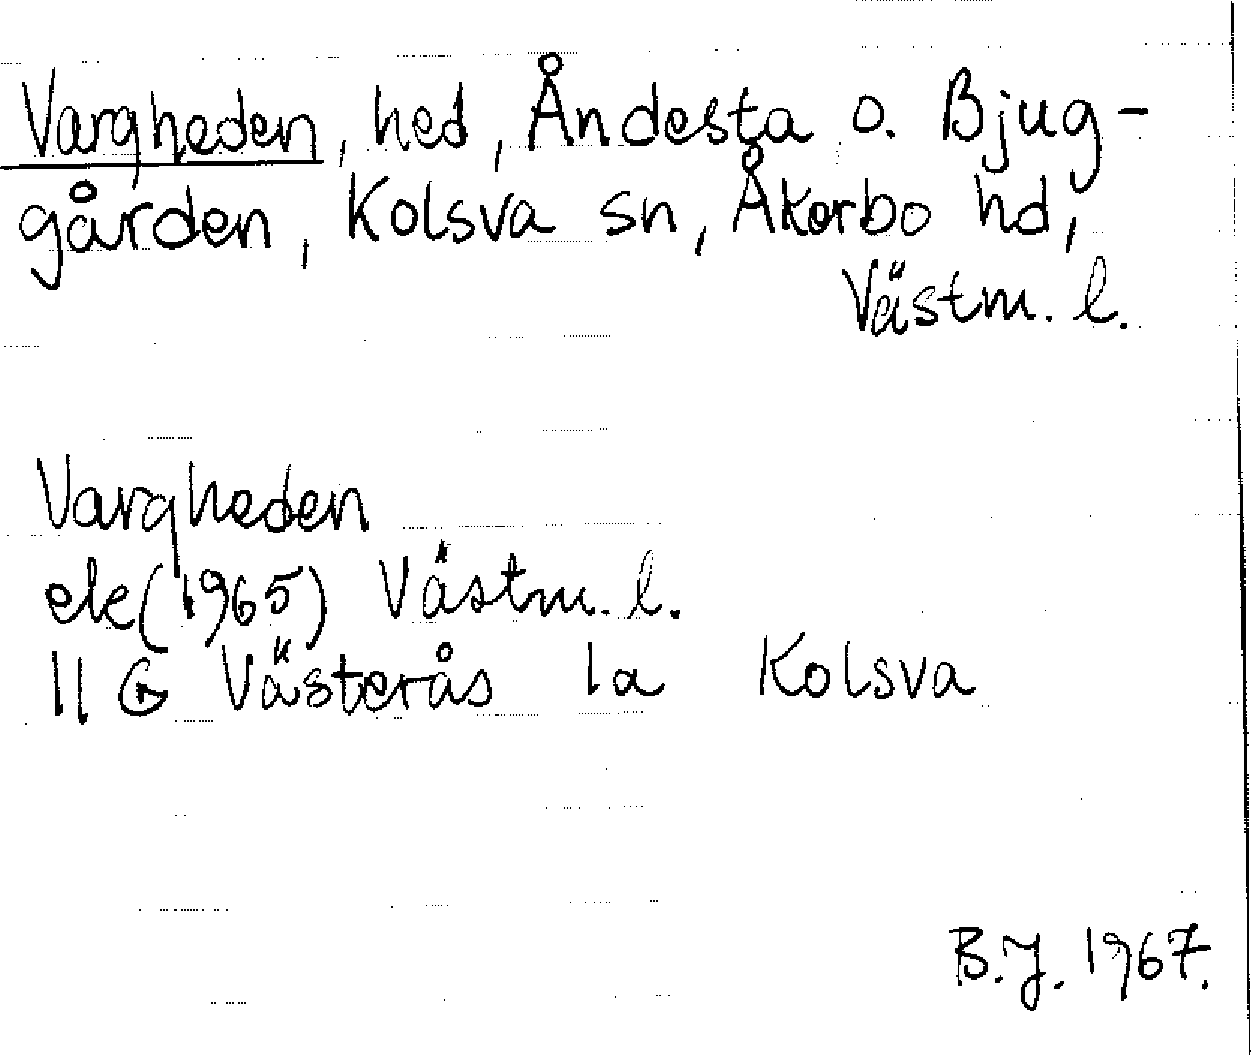 Vargheden, hed, Åndesta o. Bjug-
gården, Kolsva sn, Åkerbo hd,
Västm. l.
Vargheden
ek(1965) Västm. l.
11 G Västerås 1a Kolsva
B.J. 1967.